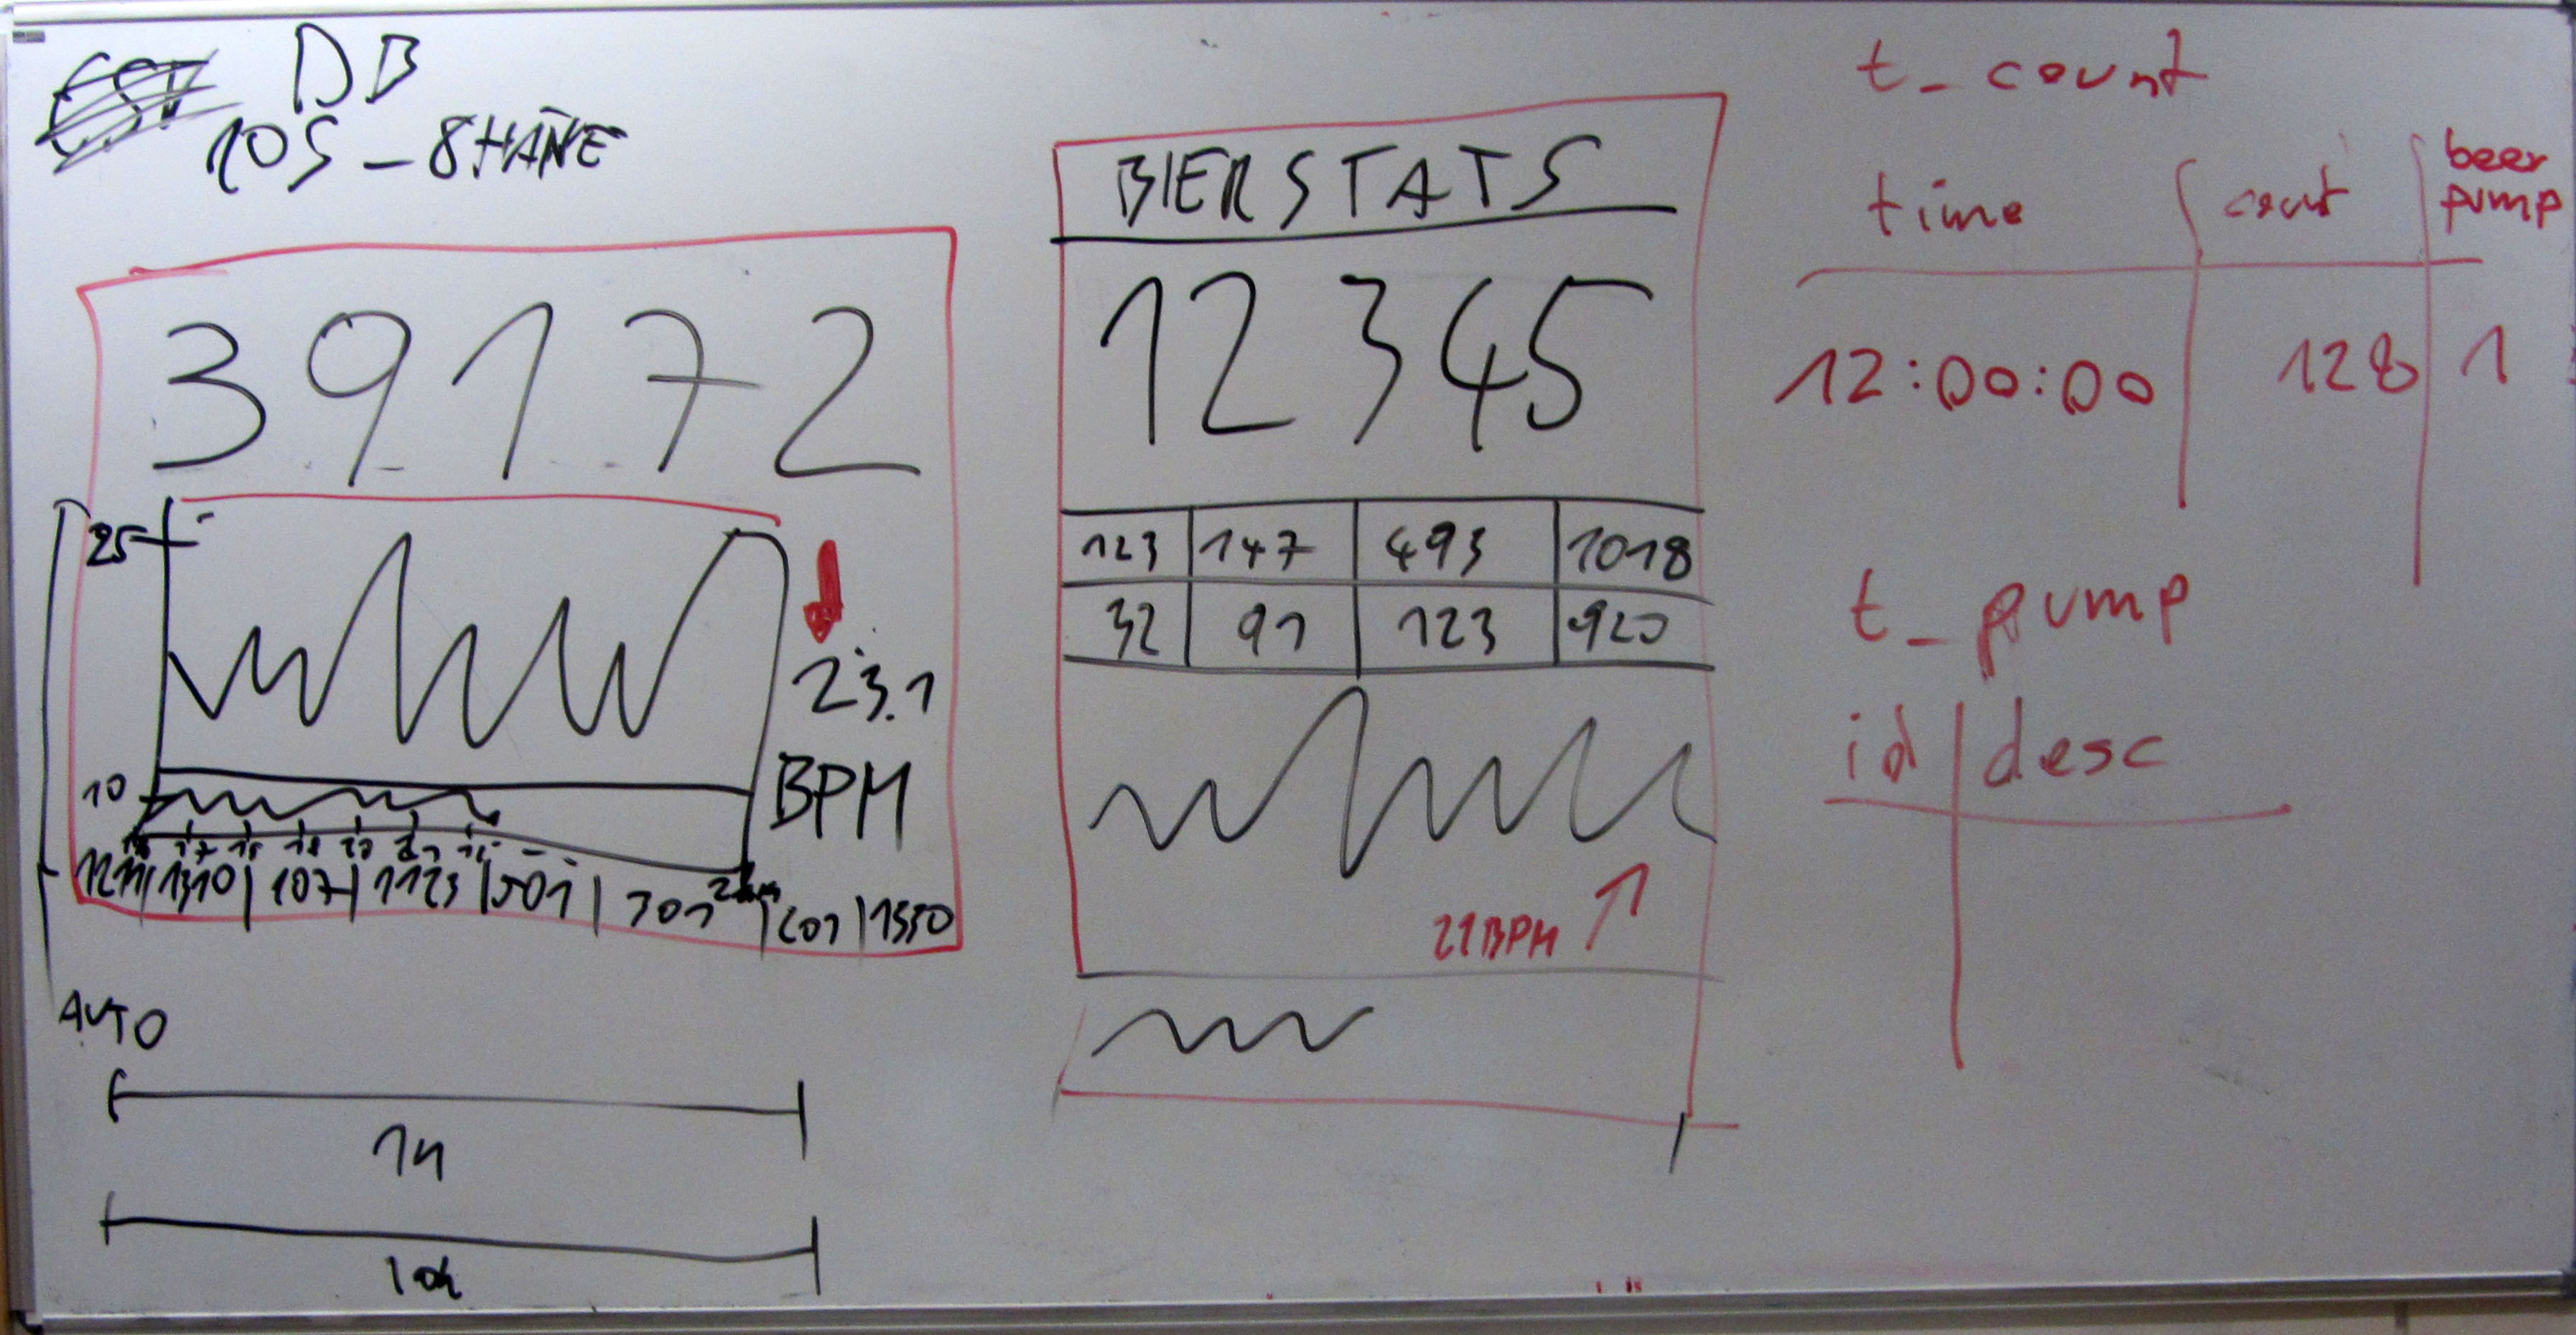 DB
10S - 8 HÄHNE
39172
25
23.1
BPM
10
1211 | 1310 | 107 | 1123 | 501 | 301 | 201 | 1550
AUTO
1H
10h
BIERSTATS
12345
123 147 493 1018
32 91 123 920
21BPM
t_count
time count beer pump
12:00:00 128 1
t_pump
id desc